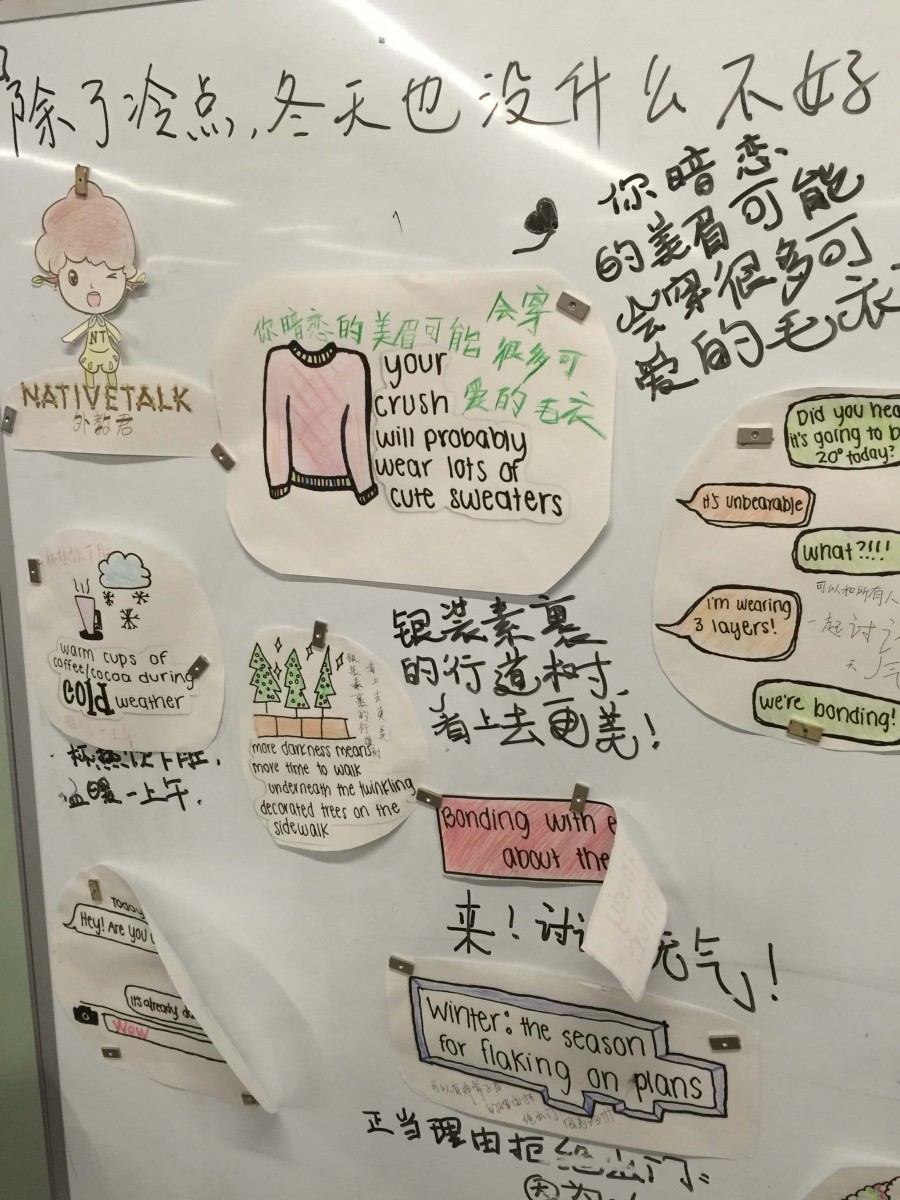 除了冷点,冬天也没什么不好
你暗恋
的美眉可能
会穿很多可
爱的毛衣
NT
NATIVETALK
外教君
你暗恋的美眉可能
会穿
很多可
爱的毛衣
your
crush
will probably
wear lots of
cute sweaters
Did you hea
it's going to b
20° today?
it's unbearable
what?!!!
i'm wearing
3 layers!
可以和所有人
一起讨论
天气
we're bonding!
warm cups of
coffee/cocoa during
cold weather
一杯热饮下肚,
温暖一上午.
more darkness means
more time to walk
underneath the twinkling
decorated trees on the
sidewalk
银装素裹
的行道树,
看上去更美!
Bonding with e
about the
来!讨
天气!
Today
Hey! Are you
It's already da
WOW
Winter: the season
for flaking on plans
正当理由拒绝出门:
因为